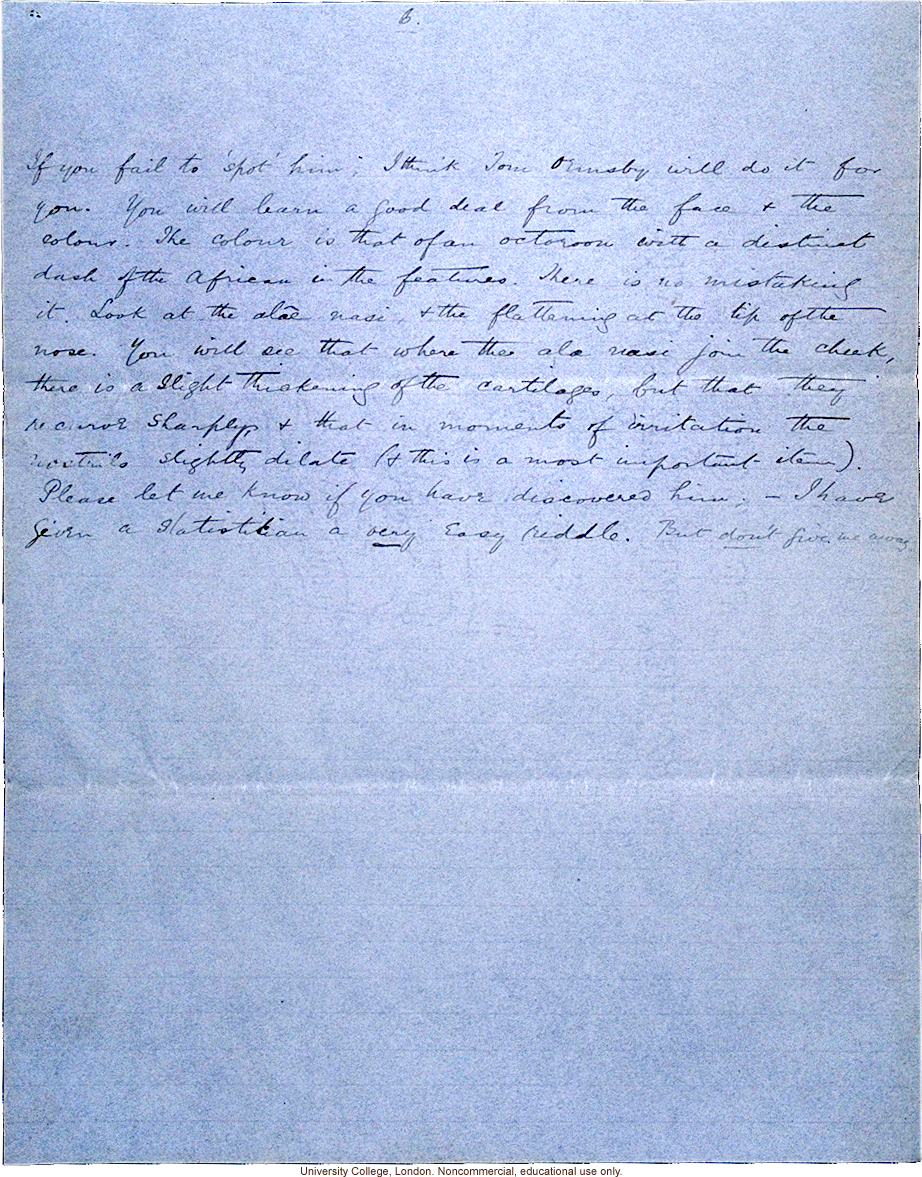 6.
If you fail to 'spot' him; I think Tom Ormsby will do it for
you. You will learn a good deal from the face & the
colour. The colour is that of an octoroon with a distinct
dash of the African in the features. There is no mistaking
it. Look at the alae nasi, & the flattening at the tip of the
nose. You will see that where the ala nasi join the cheek,
there is a slight thickening of the cartilages, but that they
recurve sharply & that in moments of irritation the
nostrils slightly dilate (& this is a most important item).
Please let me know if you have discovered him; – I have
given a Statistikian a very easy riddle. But don't give me away
University College, London. Noncommercial, educational use only.